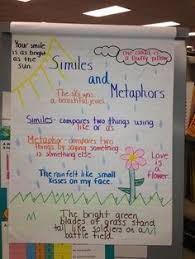 Your smile
is as bright
as the
sun.
The cloud is
a fluffy pillow.
Similes
and
Metaphors
The sky was
a beautiful jewel.
Similes- compares two things using
like or as
Metaphor- compares two
things by saying something
is something else.
Love is
a
flower.
The rain felt like small
kisses on my face.
The bright green
blades of grass stand
tall like soldiers on a
battle field.